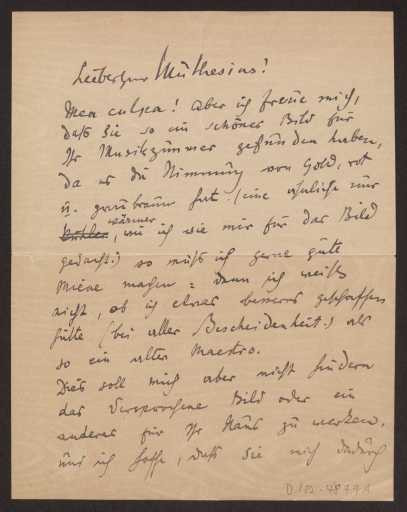 Lieber Herr Muthesius!
Mea culpa! Aber ich freue mich,
daß Sie so ein schönes Bild für
Ihr Musikzimmer gefunden haben,
da es die Stimmung von Gold, rot
u. graubraun hat. (eine ähnliche nur
wärmer
kühler, wie ich sie mir für das Bild
gedacht.) so muß ich gerne gute
Miene machen = denn ich weiß
nicht, ob ich etwas besseres geschaffen
hätte (bei aller Bescheidenheit!) als
so ein alter Maestro.
Dies soll mich aber nicht hindern
das versprochene Bild oder ein
anderes für Ihr Haus zu
und ich hoffe, daß Sie mich dadurch